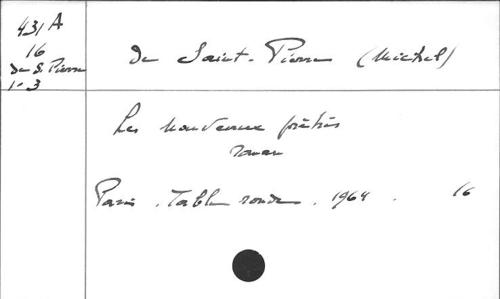 431 A
16
De S. Pierre
1-3
De Saint-Pierre (Michel)
Les Nouveaux prêtres
roman
Paris. Table ronde. 1964. 16